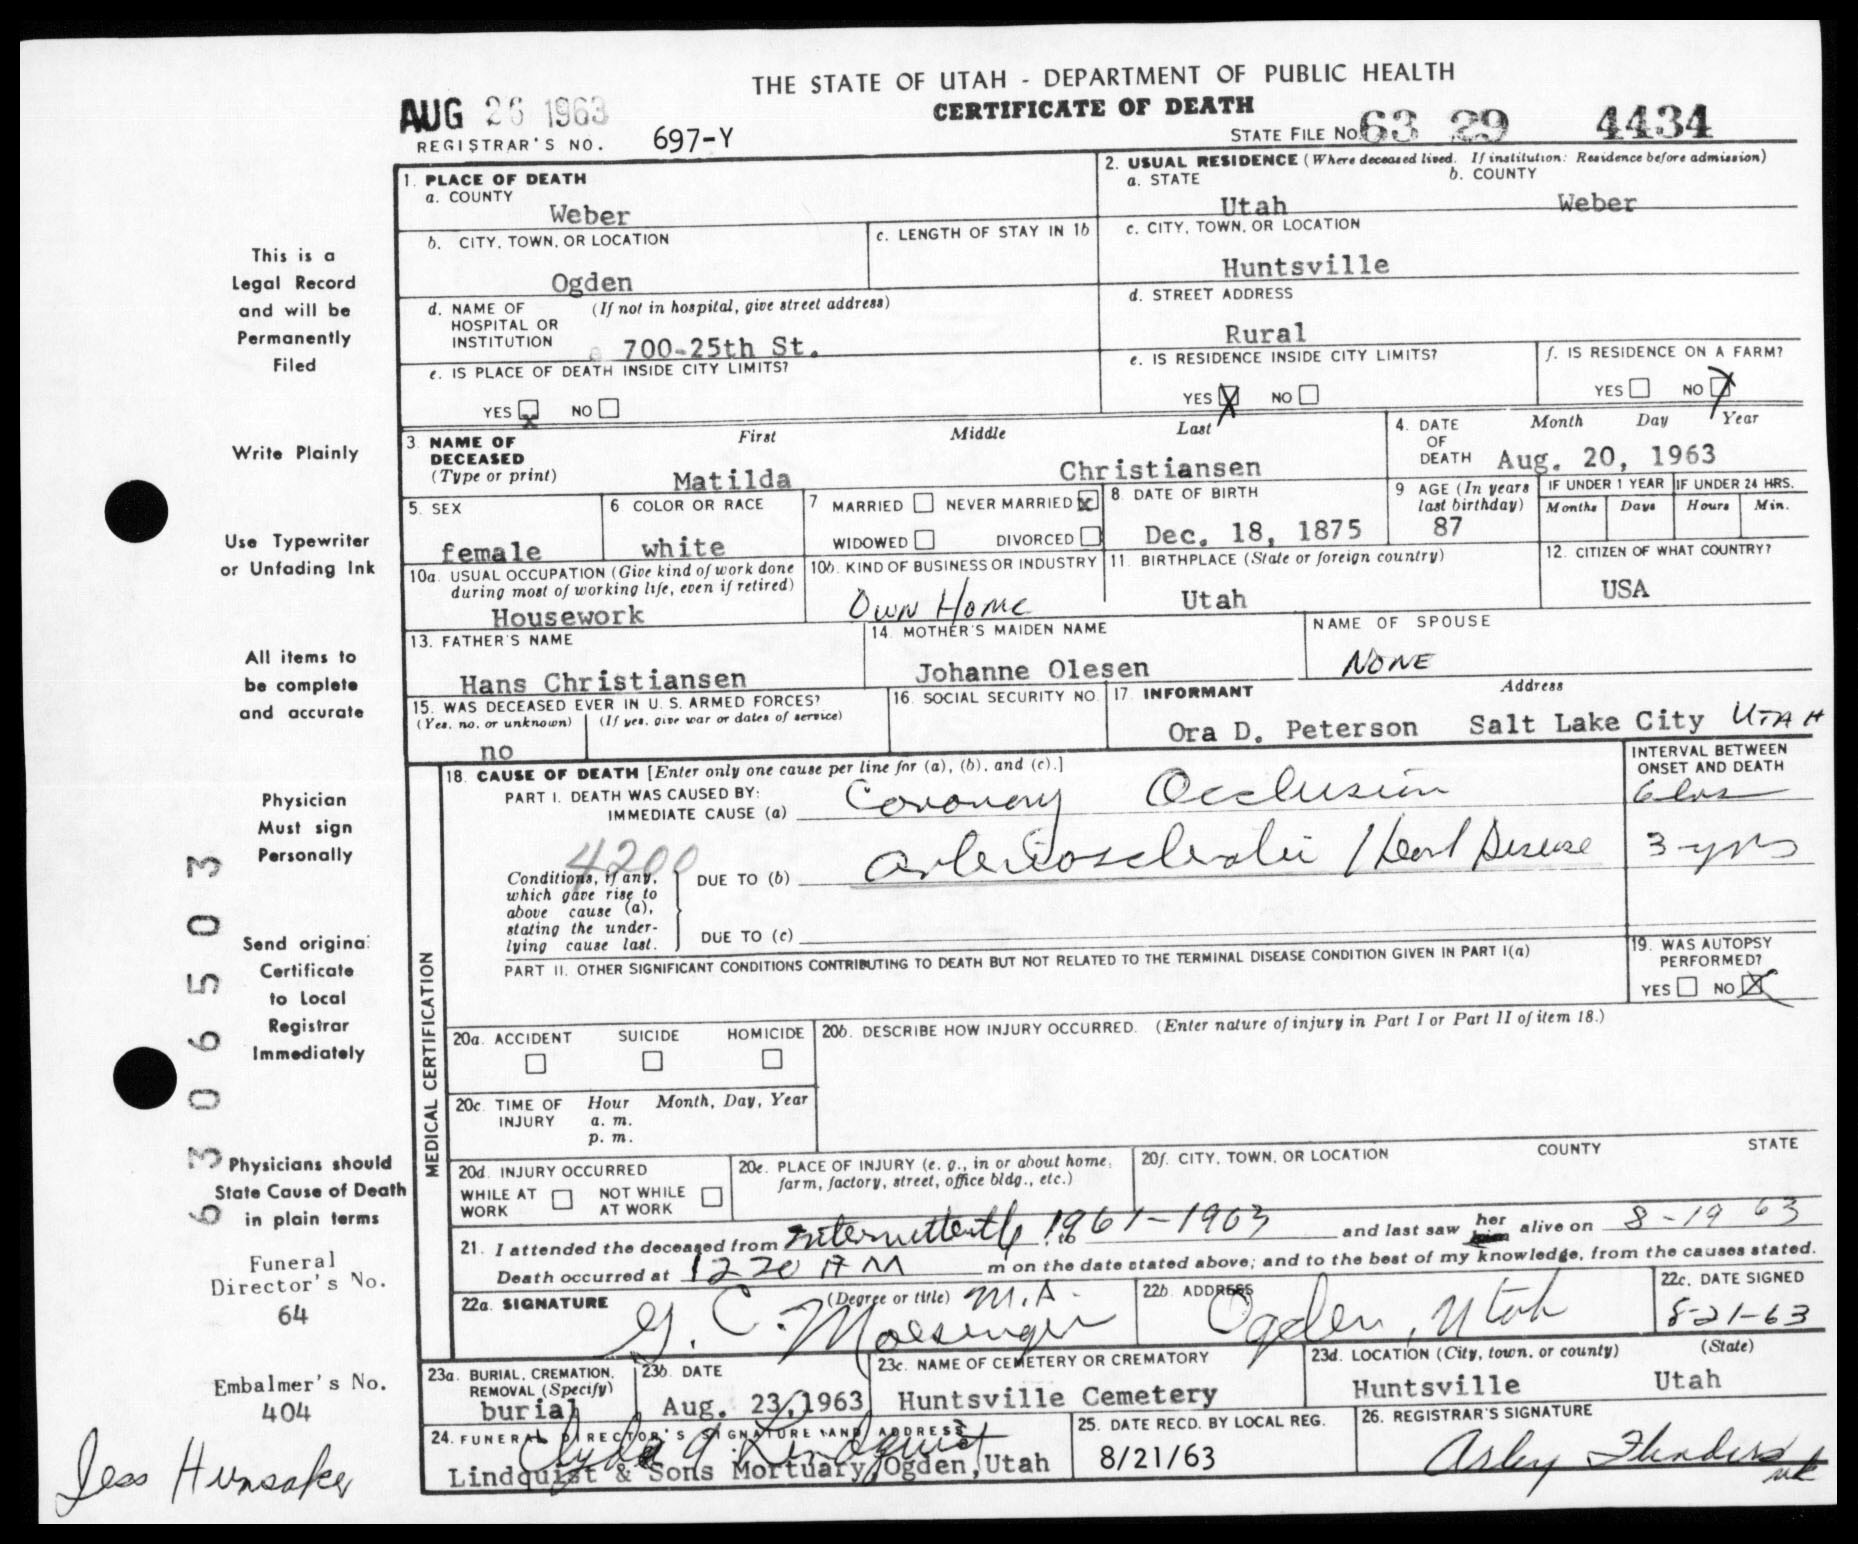 THE STATE OF UTAH - DEPARTMENT OF PUBLIC HEALTH
CERTIFICATE OF DEATH
AUG 26 1963
REGISTRAR'S NO. 697-Y
STATE FILE NO. 63 29 4434
1. PLACE OF DEATH
a. COUNTY
Weber
2. USUAL RESIDENCE (Where deceased lived. If institution: Residence before admission)
a. STATE b. COUNTY
Utah Weber
b. CITY, TOWN, OR LOCATION
Ogden
c. LENGTH OF STAY IN 1b
c. CITY, TOWN, OR LOCATION
Huntsville
d. NAME OF (If not in hospital, give street address)
HOSPITAL OR
INSTITUTION
700-25th St.
d. STREET ADDRESS
Rural
e. IS PLACE OF DEATH INSIDE CITY LIMITS?
YES x NO
e. IS RESIDENCE INSIDE CITY LIMITS?
YES X NO
f. IS RESIDENCE ON A FARM?
YES NO X
3. NAME OF
DECEASED
(Type or print)
First Middle Last
Matilda Christiansen
4. DATE
OF
DEATH
Month Day Year
Aug. 20, 1963
5. SEX
female
6 COLOR OR RACE
white
7 MARRIED NEVER MARRIED x
WIDOWED DIVORCED
8. DATE OF BIRTH
Dec. 18, 1875
9 AGE (In years
last birthday)
87
IF UNDER 1 YEAR
Months Days
IF UNDER 24 HRS.
Hours Min.
10a. USUAL OCCUPATION (Give kind of work done
during most of working life, even if retired)
Housework
10b. KIND OF BUSINESS OR INDUSTRY
OWN HOME
11. BIRTHPLACE (State or foreign country)
Utah
12. CITIZEN OF WHAT COUNTRY?
USA
13. FATHER'S NAME
Hans Christiansen
14. MOTHER'S MAIDEN NAME
Johanne Olesen
NAME OF SPOUSE
NONE
15. WAS DECEASED EVER IN U. S. ARMED FORCES?
(Yes, no, or unknown) (If yes, give war or dates of service)
no
16. SOCIAL SECURITY NO.
17. INFORMANT Address
Ora D. Peterson Salt Lake City UTAH
MEDICAL CERTIFICATION
18. CAUSE OF DEATH [Enter only one cause per line for (a), (b), and (c).]
INTERVAL BETWEEN
ONSET AND DEATH
PART I. DEATH WAS CAUSED BY:
IMMEDIATE CAUSE (a) Coronary Occlusion
4200
Conditions, if any,
which gave rise to
above cause (a),
stating the under-
lying cause last.
DUE TO (b) Arteriosclerotic Heart Disease 3 yrs
DUE TO (c)
PART II. OTHER SIGNIFICANT CONDITIONS CONTRIBUTING TO DEATH BUT NOT RELATED TO THE TERMINAL DISEASE CONDITION GIVEN IN PART I(a)
19. WAS AUTOPSY
PERFORMED?
YES NO X
20a. ACCIDENT SUICIDE HOMICIDE
20b. DESCRIBE HOW INJURY OCCURRED. (Enter nature of injury in Part I or Part II of item 18.)
20c. TIME OF Hour Month, Day, Year
INJURY a. m.
p. m.
20d. INJURY OCCURRED
WHILE AT NOT WHILE
WORK AT WORK
20e. PLACE OF INJURY (e. g., in or about home,
farm, factory, street, office bldg., etc.)
20f. CITY, TOWN, OR LOCATION COUNTY STATE
21. I attended the deceased from Intermittently 1961-1963 to and last saw her him alive on 8-19 63
Death occurred at 1220 AM m on the date stated above; and to the best of my knowledge, from the causes stated.
22a. SIGNATURE (Degree or title) M.D.
G. C. Moesinger
22b. ADDRESS
Ogden, Utah
22c. DATE SIGNED
8-21-63
23a. BURIAL, CREMATION,
REMOVAL (Specify)
burial
23b. DATE
Aug. 23, 1963
23c. NAME OF CEMETERY OR CREMATORY
Huntsville Cemetery
23d. LOCATION (City, town, or county) (State)
Huntsville Utah
24. FUNERAL DIRECTOR'S SIGNATURE AND ADDRESS
Clyde A. Lindquist
Lindquist & Sons Mortuary, Ogden, Utah
25. DATE RECD. BY LOCAL REG.
8/21/63
26. REGISTRAR'S SIGNATURE
This is a
Legal Record
and will be
Permanently
Filed
Write Plainly
Use Typewriter
or Unfading Ink
All items to
be complete
and accurate
Physician
Must sign
Personally
Send original
Certificate
to Local
Registrar
Immediately
Physicians should
State Cause of Death
in plain terms
Funeral
Director's No.
64
Embalmer's No.
404
Jess Hunsaker
6306503